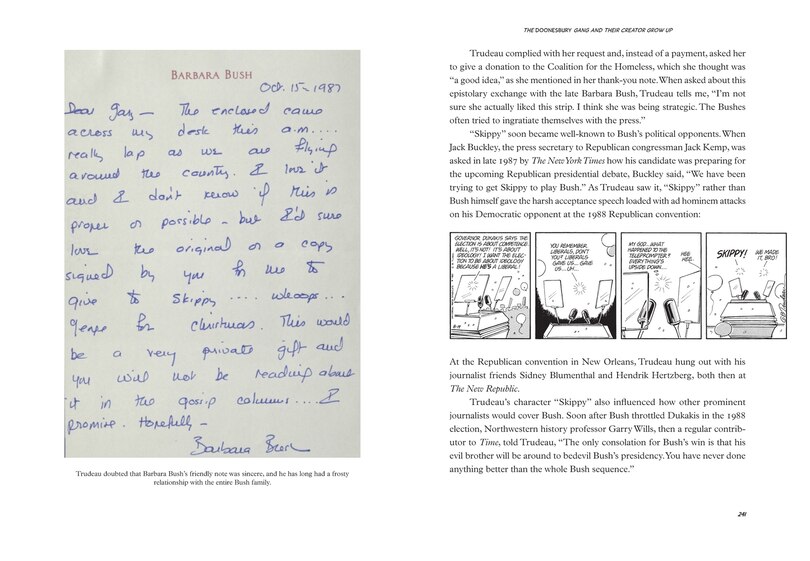 BARBARA BUSH
Oct. 15-1987
Dear Gary — The enclosed came
across my desk this a.m....
really lap as we are flying
around the country. I love it
and I don't know if this is
proper or possible - but I'd sure
love the original or a copy
signed by you for me to
give to Skippy .... whoops...
George for Christmas. This would
be a very private gift and
you will not be reading about
it in the gossip columns.... I
promise. Hopefully —
Barbara Bush
Trudeau doubted that Barbara Bush's friendly note was sincere, and he has long had a frosty
relationship with the entire Bush family.
THE DOONESBURY GANG AND THEIR CREATOR GROW UP
Trudeau complied with her request and, instead of a payment, asked her
to give a donation to the Coalition for the Homeless, which she thought was
“a good idea,” as she mentioned in her thank-you note. When asked about this
epistolary exchange with the late Barbara Bush, Trudeau tells me, “I'm not
sure she actually liked this strip. I think she was being strategic. The Bushes
often tried to ingratiate themselves with the press.”
“Skippy” soon became well-known to Bush's political opponents. When
Jack Buckley, the press secretary to Republican congressman Jack Kemp, was
asked in late 1987 by The New York Times how his candidate was preparing for
the upcoming Republican presidential debate, Buckley said, “We have been
trying to get Skippy to play Bush.” As Trudeau saw it, “Skippy” rather than
Bush himself gave the harsh acceptance speech loaded with ad hominem attacks
on his Democratic opponent at the 1988 Republican convention:
GOVERNOR DUKAKIS SAYS THE
ELECTION IS ABOUT COMPETENCE.
WELL, IT'S NOT! IT'S ABOUT
IDEOLOGY! I WANT THE ELEC-
TION TO BE ABOUT IDEOLOGY
BECAUSE HE'S A LIBERAL!
YOU REMEMBER
LIBERALS, DON'T
YOU? LIBERALS
GAVE US... GAVE
US...UM...
MY GOD...WHAT
HAPPENED TO THE
TELEPROMPTER?
EVERYTHING'S
UPSIDE DOWN...
HEE
HEE.
SKIPPY!
WE MADE
IT, BRO!
At the Republican convention in New Orleans, Trudeau hung out with his
journalist friends Sidney Blumenthal and Hendrik Hertzberg, both then at
The New Republic.
Trudeau's character “Skippy” also influenced how other prominent
journalists would cover Bush. Soon after Bush throttled Dukakis in the 1988
election, Northwestern history professor Garry Wills, then a regular contrib-
utor to Time, told Trudeau, “The only consolation for Bush's win is that his
evil brother will be around to bedevil Bush's presidency. You have never done
anything better than the whole Bush sequence.”
241